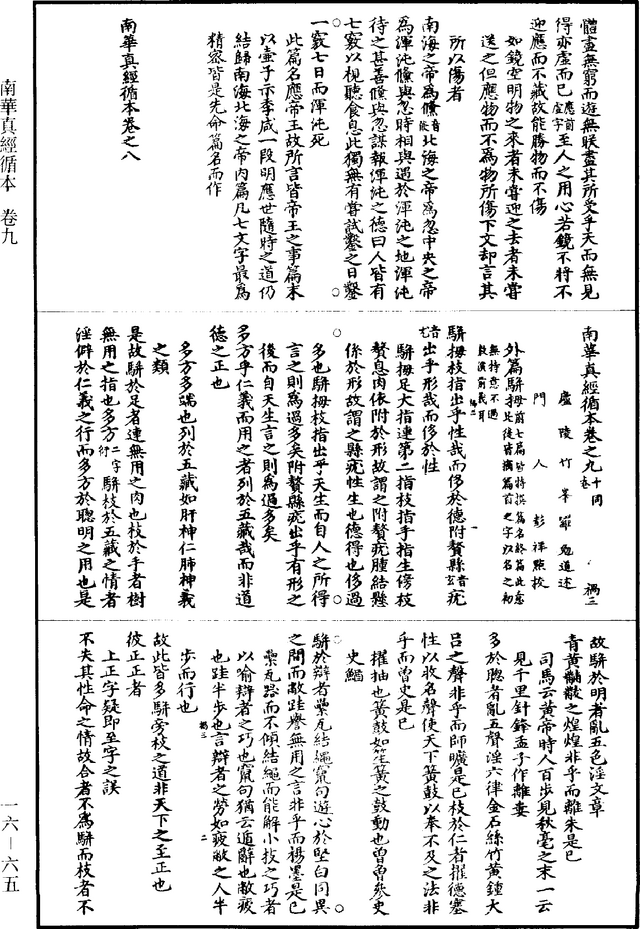 體盡無窮而遊無朕盡其所受乎天而無見
得亦虛而已應前虛字至人之用心若鏡不將不
迎應而不藏故能勝物而不傷
如鏡空明物之來者未嘗迎之去者未嘗
送之但應物而不為物所傷下文却言其
所以傷者
南海之帝為儵音叔北海之帝為忽中央之帝
為渾沌儵與忽時相與遇於渾沌之地渾沌
待之甚善儵與忽謀報渾沌之德曰人皆有
七竅以視聽食息此獨無有嘗試鑿之日鑿
一竅七日而渾沌死
此篇名應帝王故所言皆帝王之事篇末
以壺子示季咸一段明應世隨時之道仍
結歸南海北海之帝內篇凡七文字最為
精密皆是先命篇名而作
南華真經循本卷之八
南華真經循本卷之九十同卷 禍三
廬陵竹峯羅勉道述
門人彭祥點校
外篇駢拇前七篇皆特撰篇名於篇此愈
無特意不過
從演前義耳
駢拇枝指出乎性哉而侈於德附贅縣音玄疣
音尤出乎形哉而侈於性
駢拇足大指連第二指枝指手指生傍枝
贅息肉依附於形故謂之附贅疣腫結懸
係於形故謂之縣疣性生也德得也侈過
多也駢拇枝指出乎天生而自人之所得
言之則為過多矣附贅縣疣出乎有形之
後而自天生言之則為過多矣
多方乎仁義而用之者列於五藏哉而非道
德之正也
多方多端也列於五藏如肝神仁肺神義
之類
是故駢於足者連無用之肉也枝於手者樹
無用之指也多方二字衍駢枝於五藏之情者
淫僻於仁義之行而多方於聰明之用也是
故駢於明者亂五色淫文章
青黃黼黻之煌煌非乎而離朱是已
司馬云黃帝時人百步見秋毫之末一云
見千里針鋒孟子作離婁
多於聰者亂五聲淫六律金石絲竹黃鍾大
呂之聲非乎而師曠是已枝於仁者擢德塞
性以收名聲使天下簧鼓以奉不及之法非
乎而曾史是已
擢抽也簧鼓如笙簧之鼓動也曾曾參史
史鰌
駢於辯者纍瓦結繩竄句遊心於堅白同異
之間而敝跬譽無用之言非乎而楊墨是已
纍瓦累而不傾結繩而能解小技之巧者
以喻辯者之巧也竄句猶云遁辭也敝疲
也跬半步也言辯者之勞如疲敝之人半
步而行也
故此皆多駢旁枝之道非天下之至正也
彼正正者
上正字疑即至字之誤
不失其性命之情故合者不為駢而枝者不
南華真經循本 卷九
一六—六五